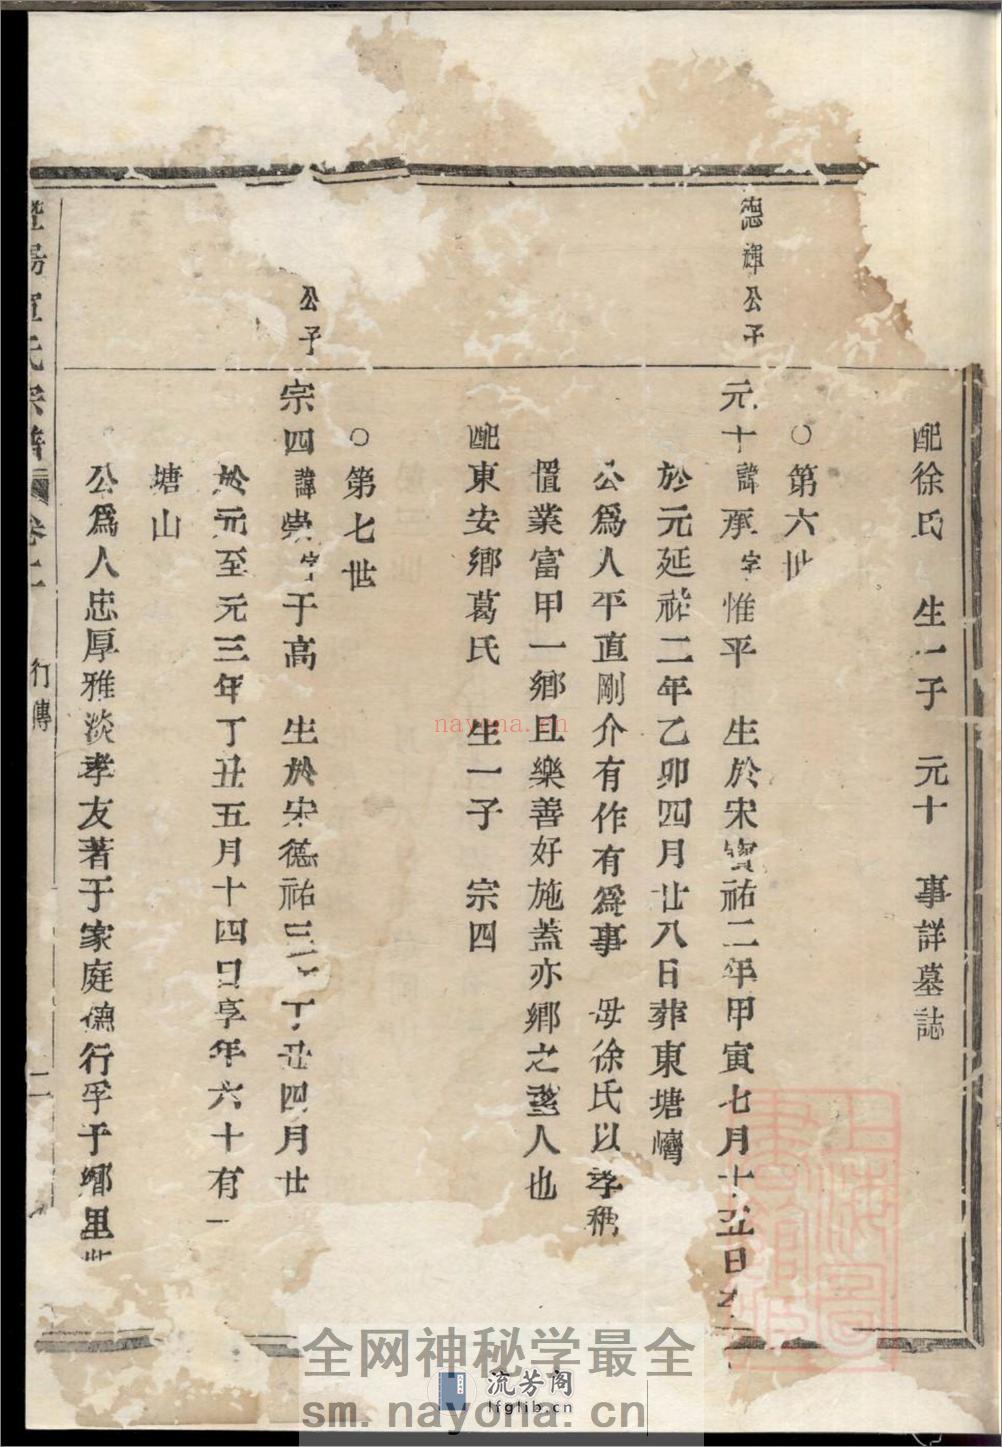 配徐氏　生一子　元十　事詳墓誌
○第六世
德輝公子
元十諱承字惟平　生於宋寶祐二年甲寅七月十五日
於元延祐二年乙卯四月廿八日葬東塘
公爲人平直剛介有作有爲事　母徐氏以孝稱
置業富甲一鄉且樂善好施蓋亦鄉之望人也
配東安鄉葛氏　生一子　宗四
○第七世
公子
宗四諱崇字于高　生於宋德祐三　丁丑四月廿
於元至元三年丁丑五月十四日享年六十有一
塘山
公爲人忠厚雅淡孝友著于家庭德行孚于鄉里
暨陽宣氏宗譜　卷二　行傳　二
上海圖書館藏
nayona.cn
全网神秘学最全
流芳阁
lfglib.cn
sm.nayona.cn